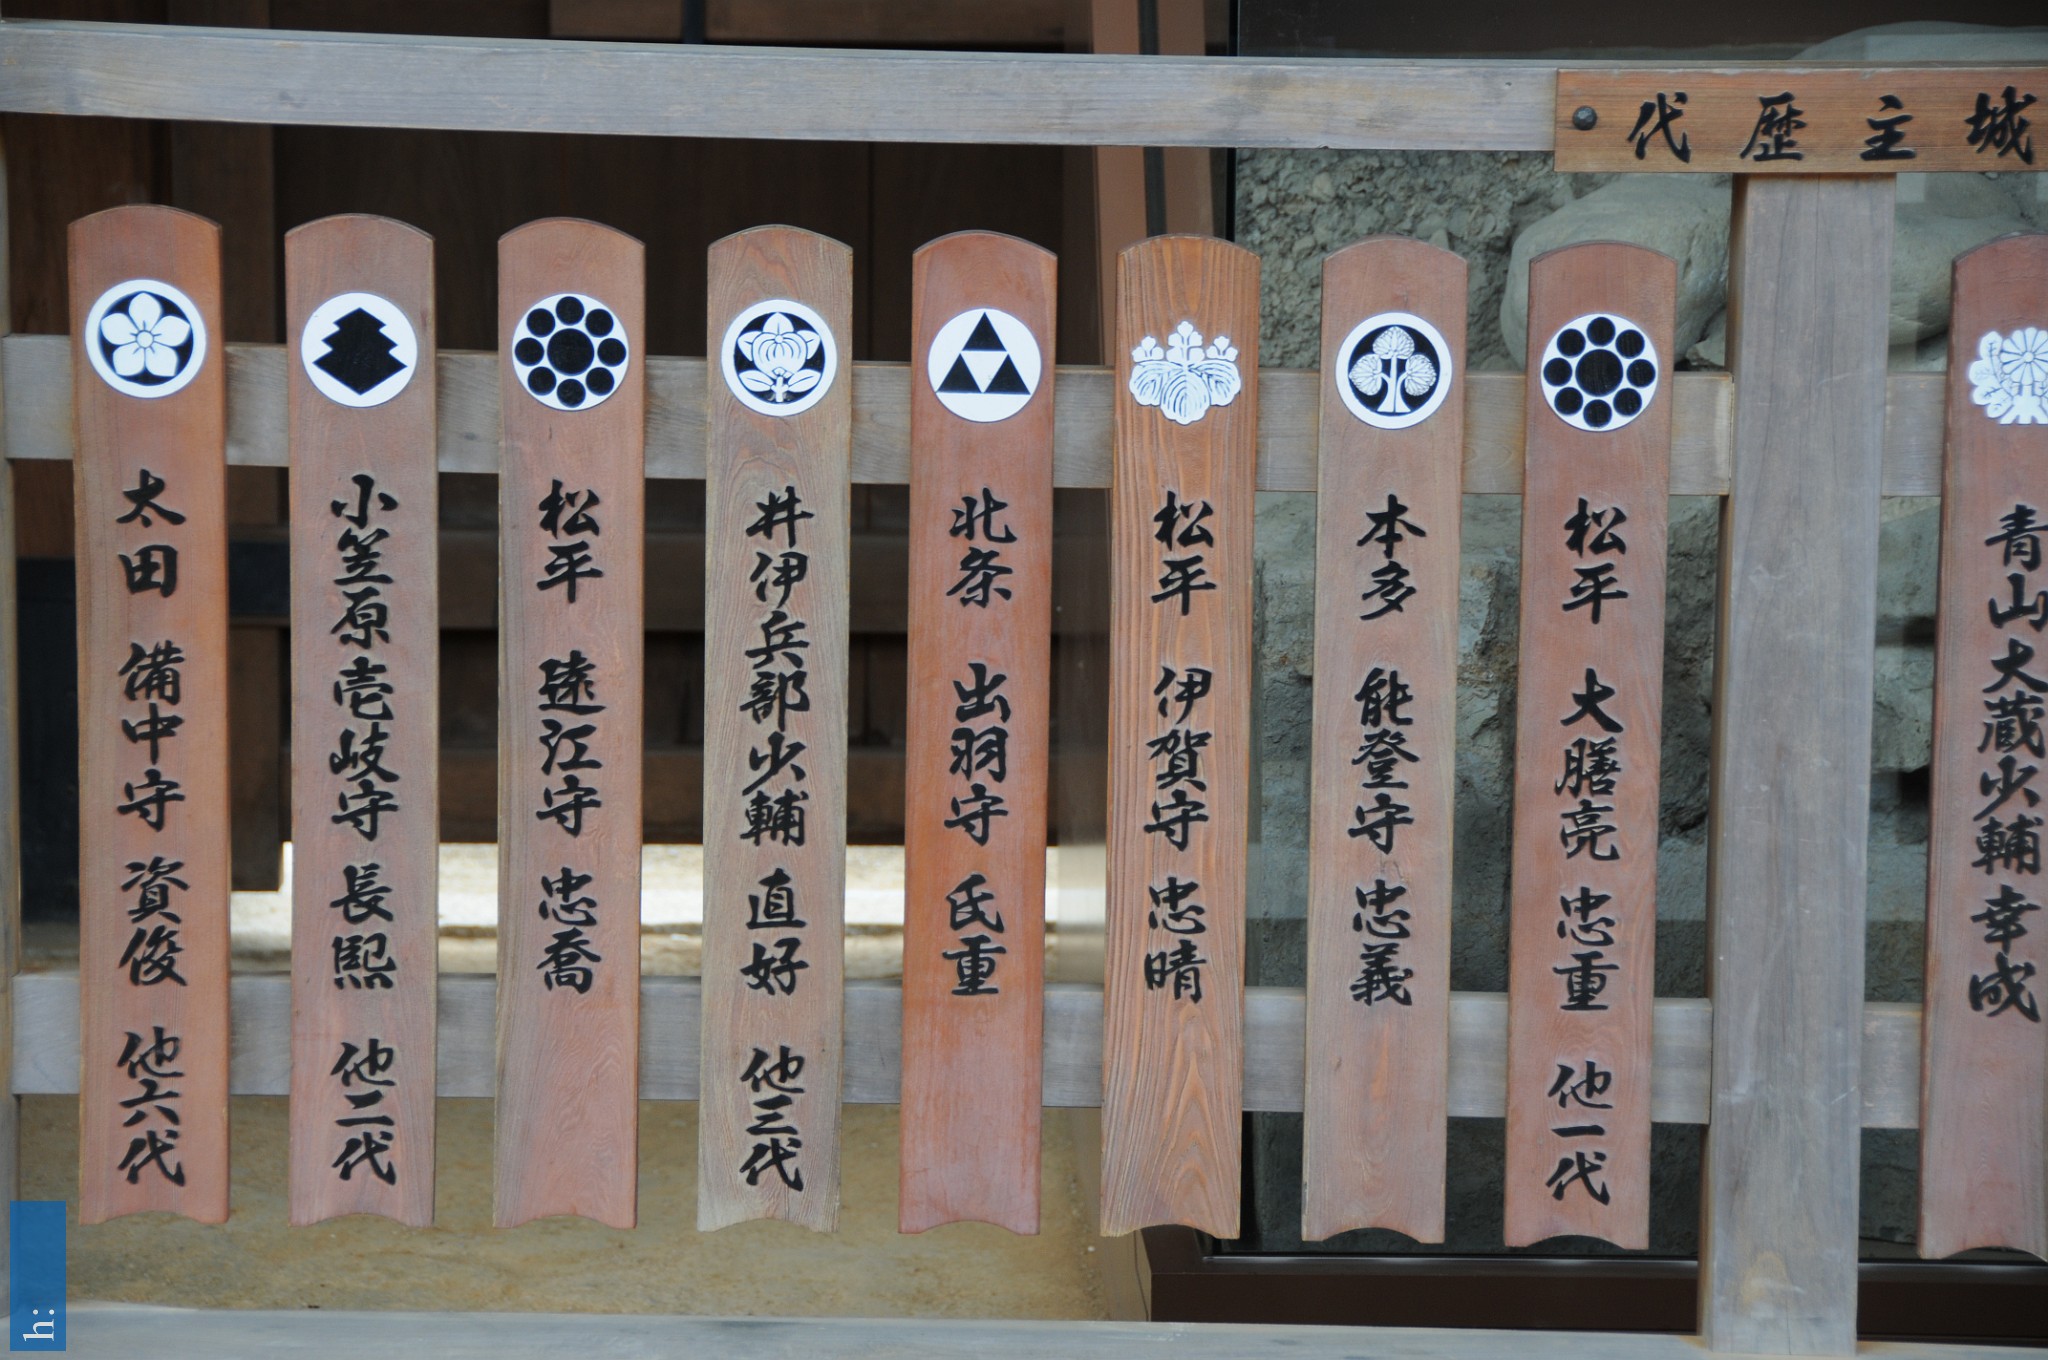 城主歴代
青山大蔵少輔幸成
松平 大膳亮 忠重 他一代
本多 能登守 忠義
松平 伊賀守 忠晴
北条 出羽守 氏重
井伊兵部少輔 直好 他三代
松平 遠江守 忠喬
小笠原壱岐守 長熙 他二代
太田 備中守 資俊 他六代
h: